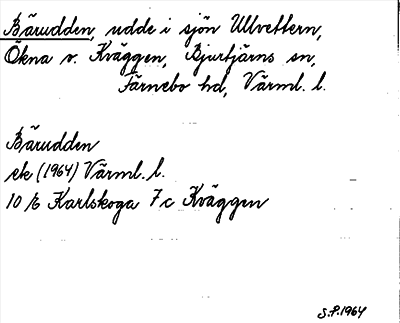 Bärudden, udde i sjön Ullvettern,
Ökna v. Kväggen, Bjurtjärns sn,
Färnebo hd, Värml. l.
Bärudden
ek (1964) Värml. l.
10 /6 Karlskoga 7 c Kväggen
S.P. 1964